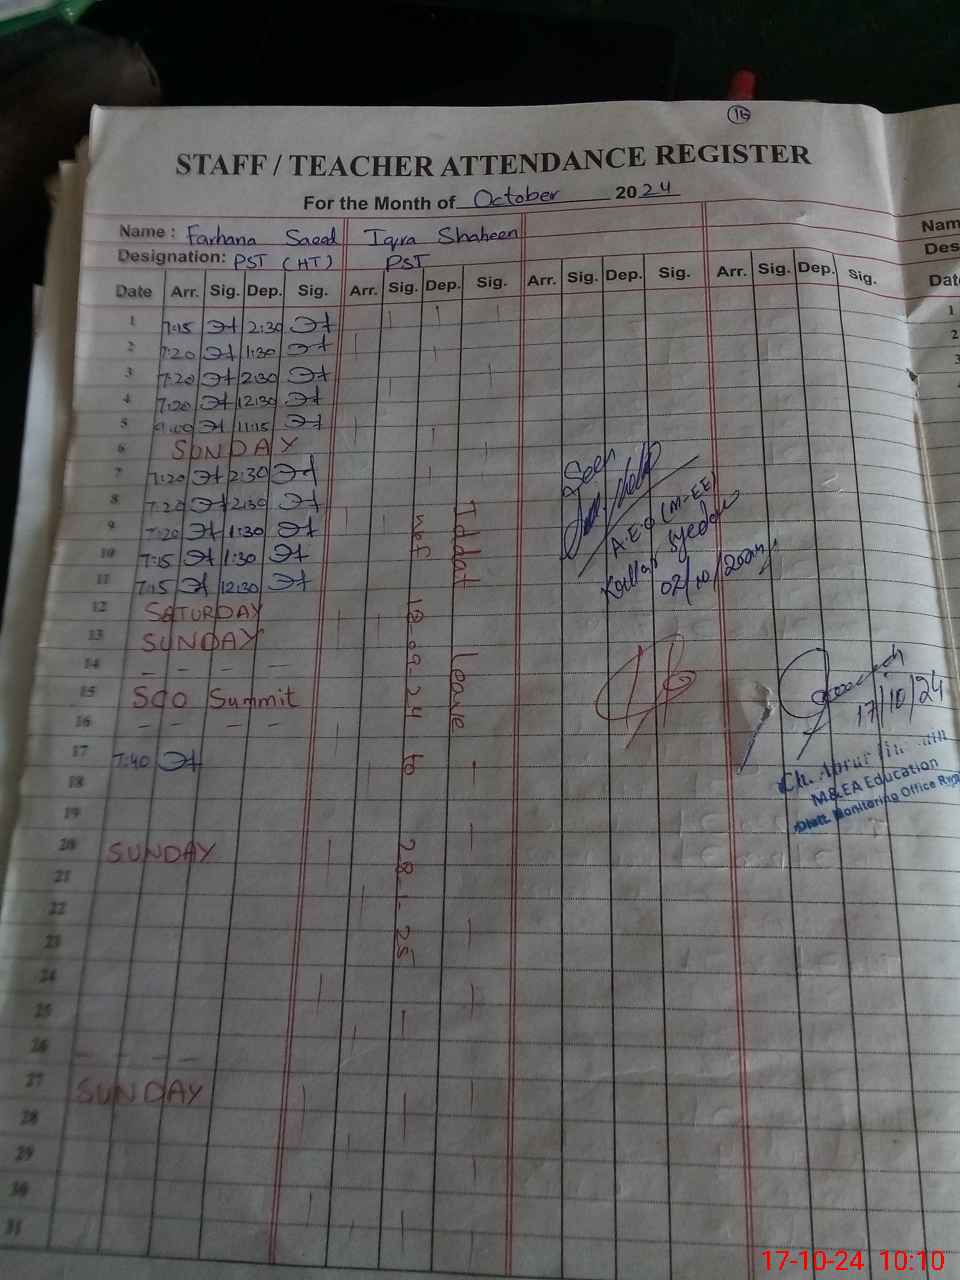 16
STAFF / TEACHER ATTENDANCE REGISTER
For the Month of October 2024
Name : Farhana Saeed Iqra Shaheen
Designation: PST (HT) PST
Date Arr. Sig. Dep. Sig. Arr. Sig. Dep. Sig. Arr. Sig. Dep. Sig. Arr. Sig. Dep. Sig.
1 7:15 2:30
2 7:20 1:30
3 7:20 2:30
4 7:20 12:30
5 11:15
6 SUNDAY
7 7:20 2:30
8 7:20 2:30
9 7:20 1:30
10 7:15 1:30
11 7:15 12:30
12 SATURDAY
13 SUNDAY
14 - - - -
15 SCO Summit
16 - - - -
17 7:40
18
19
20 SUNDAY
21
22
23
24
25
26 - - - -
27 SUNDAY
28
29
30
31
Iddat Leave
wef 18-09-24 to 28-1-25
Seen
A.E.O (M-EE)
Kallar Syedan
02/10/2024
17/10/24
M&EA Education
Distt. Monitoring Office
Nam
Des
Date
1
2
3
17-10-24 10:10